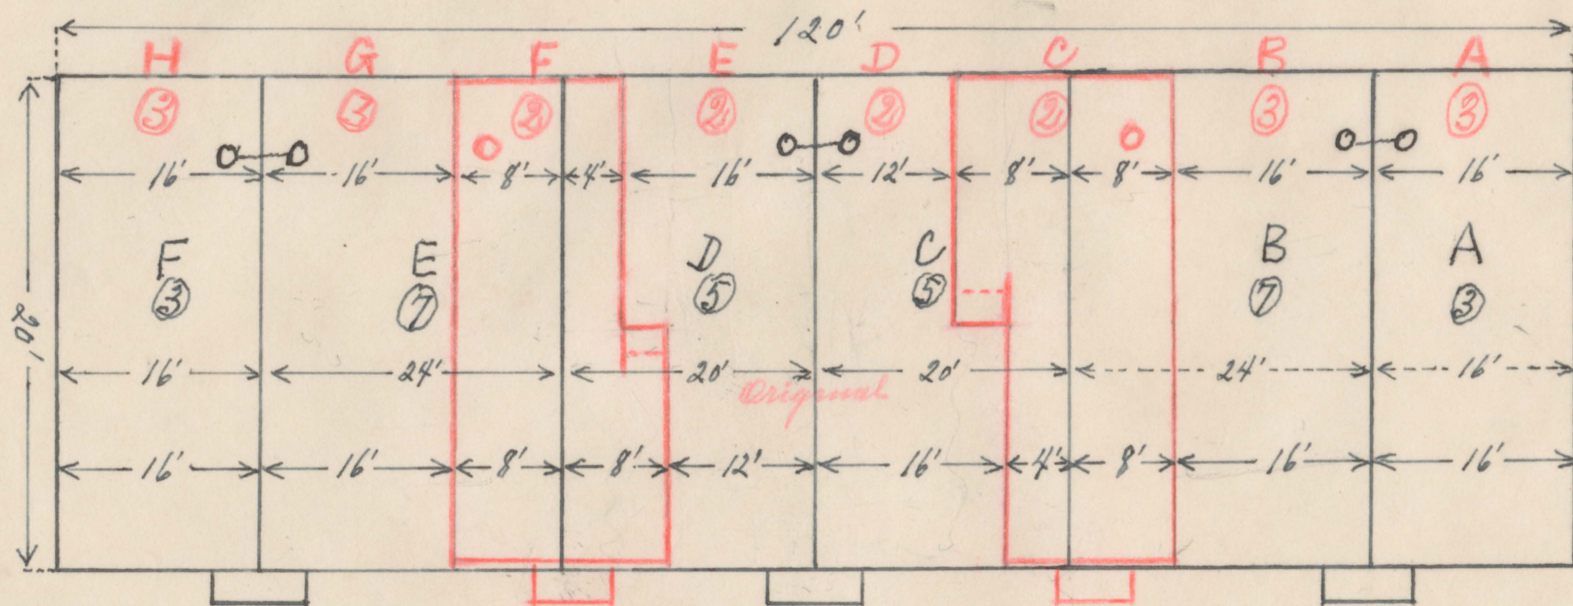 120'
H G F E D C B A
3 3 2 2 2 2 3 3
16' 16' 8' 4' 16' 12' 8' 8' 16' 16'
F E D C B A
3 7 5 5 7 3
20'
16' 24' 20' 20' 24' 16'
Original
16' 16' 8' 8' 12' 16' 4' 8' 16' 16'